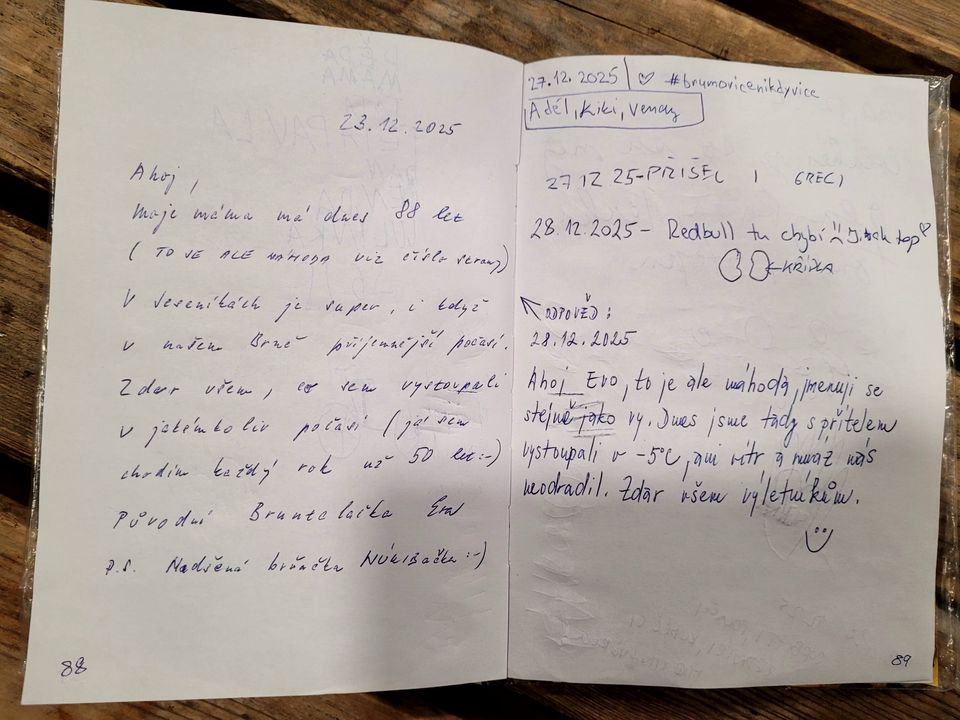 23.12.2025
Ahoj,
moje máma má dnes 88 let
(TO JE ALE NÁHODA VIZ číslo strany)
V Jeseníkách je super, i když
v našem Brně příjemnější počasí.
Zdar všem, co sem vystoupali
v jakémkoliv počasí (já sem
chodím každý rok už 50 let :-)
Původní Bruntalačka Eva
P.S. Nadšená brňačka
88
27.12.2025 ♡ #brumovicenikdyvice
Adél, Kiki, Vendy
27 12 25-PŘIŠEL I GRECI
28.12.2025- Redbull tu chybí Jinak top ♡
←KŘÍDLA
ODPOVĚĎ:
28.12.2025
Ahoj Evo, to je ale náhoda, jmenuji se
stejně jako vy. Dnes jsme tady s přítelem
vystoupali v -5°C, ani vítr a mráz nás
neodradil. Zdar všem výletníkům.
89